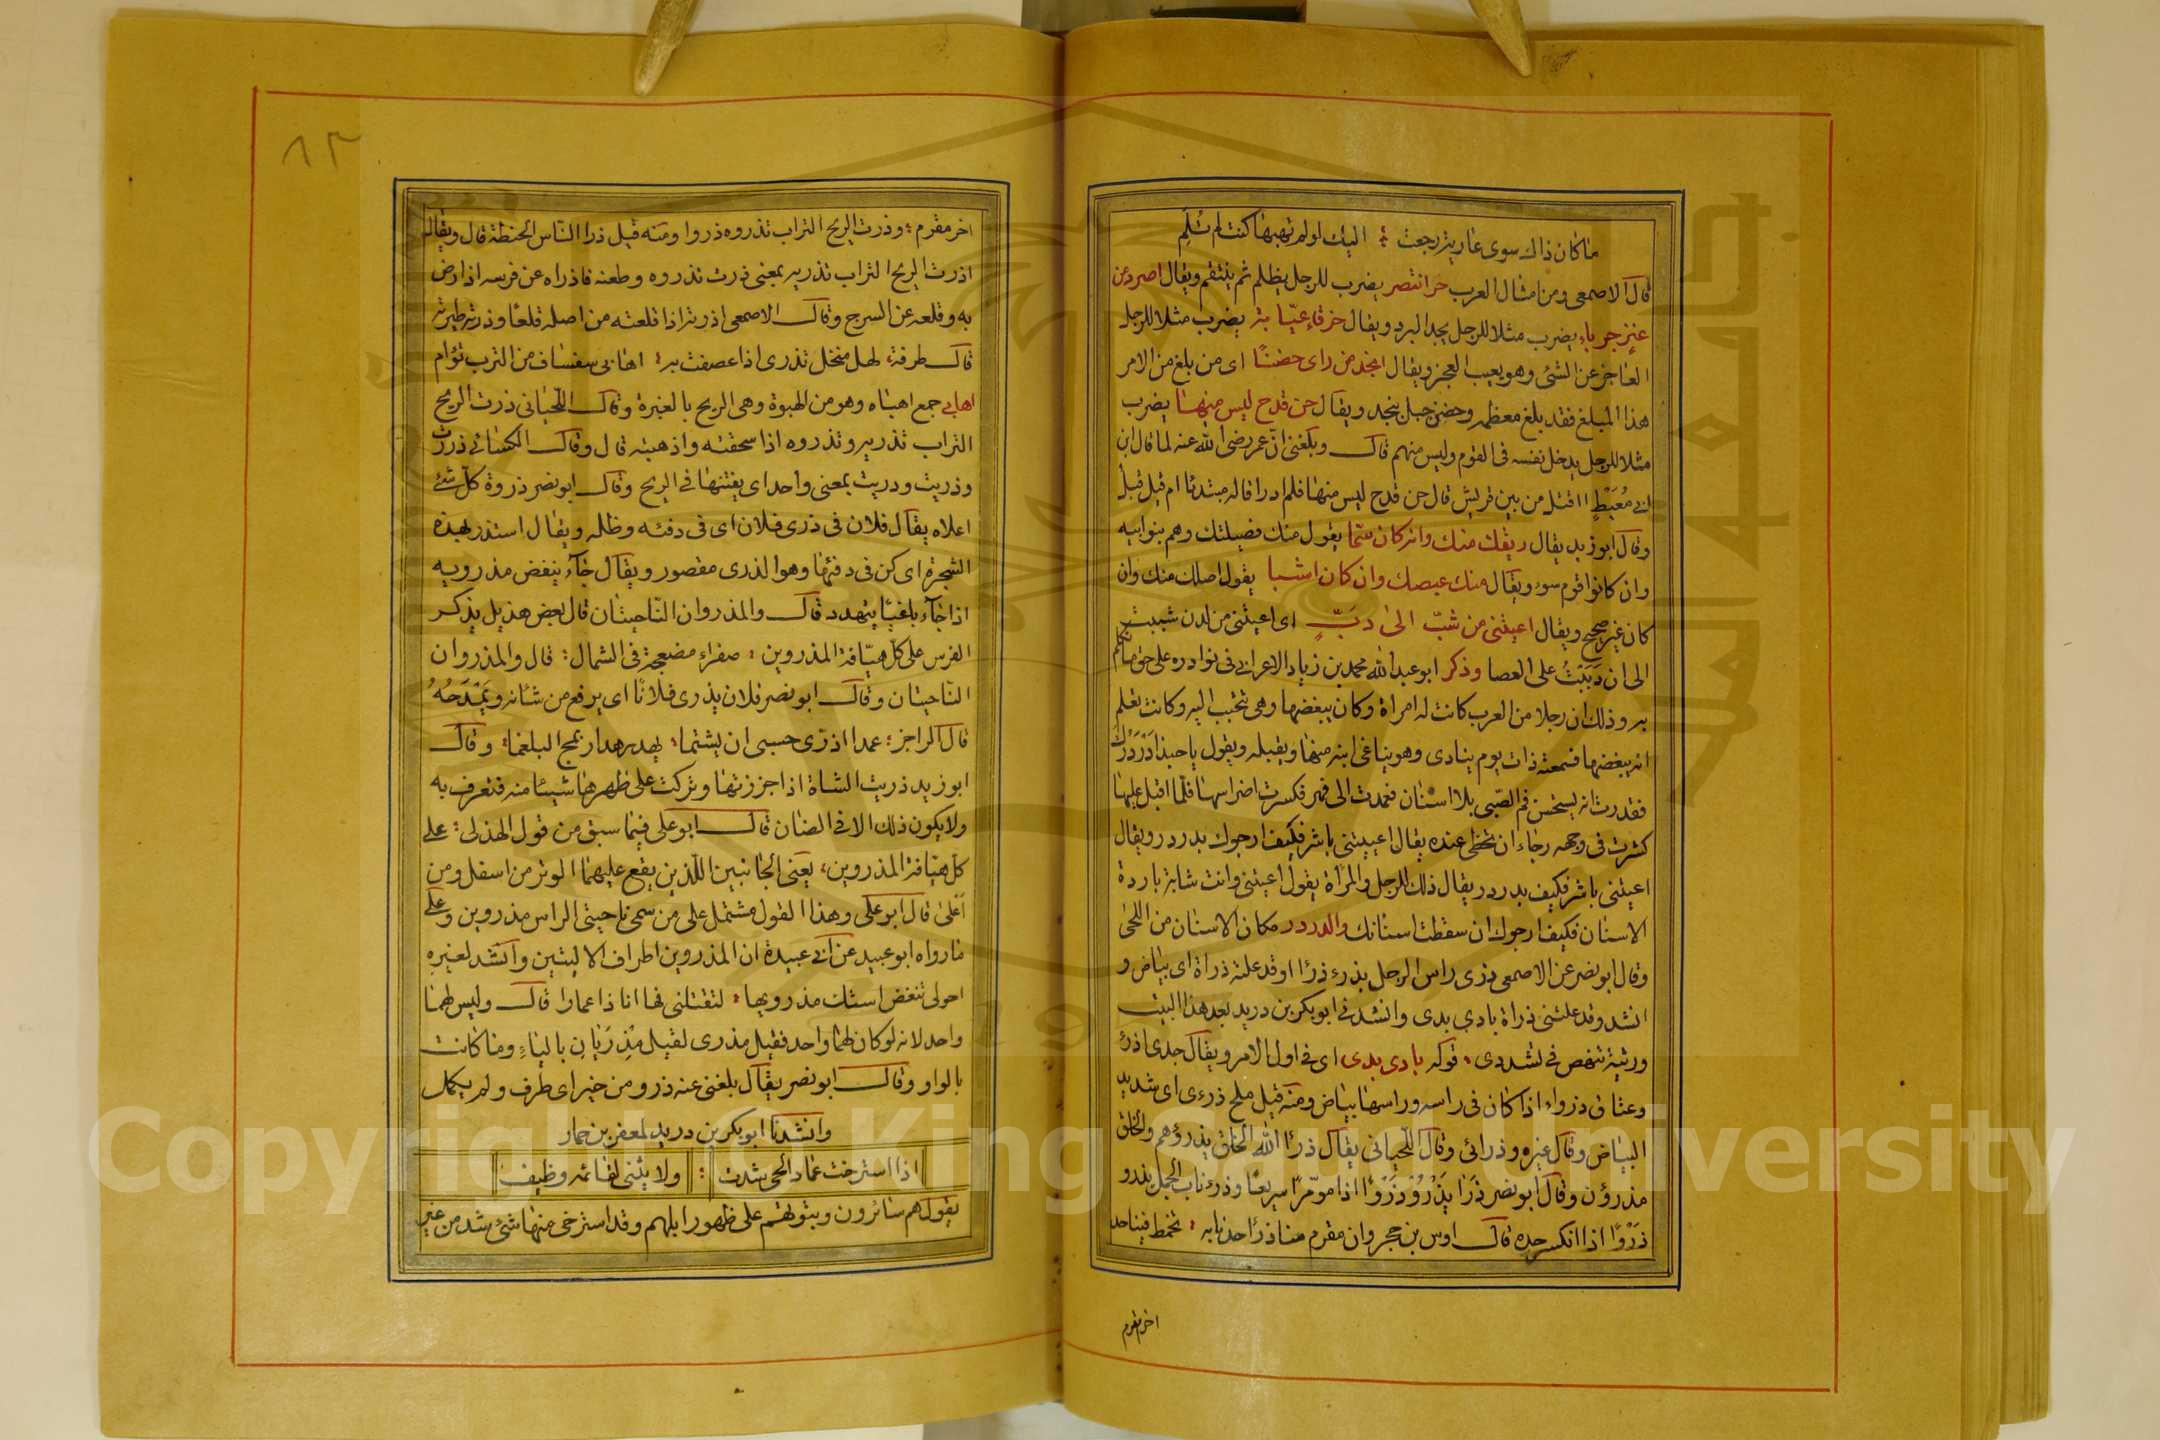 ماكان ذاك سوى عارية رجعت : اليك او لم تهبها كنت لم تُلَم
قال الاصمعى ومن امثال العرب حرانتصر يضرب للرجل يظلم ثم ينتقم ويقال اصرد من
عنز جرباء يضرب مثلا للرجل يجد البرد ويقال خرقاء عيّابة يضرب مثلا للرجل
العاجز عن الشئ وهو يعيب العجز ويقال انجد من راى حضنًا اى من بلغ من الامر
هذا المبلغ فقد بلغ معظمه وحضن جبل بنجد ويقال حن قدح ليس منها يضرب
مثلا للرجل يدخل نفسه فى القوم وليس منهم قال وبلغنى ان عمر رضى الله عنه لما قال ابن
ابى مُعَيْطٍ ااقتل من بين قريش قال حن قدح ليس منها فلم ادر اقاله مبتدئا ام قيل قبل
وقال ابو زيد يقال ربضك منك وان كان سمّا يقول منك فصيلتك وهم بنو ابيه
وان كانوا قوم سوء ويقال منك عيصك وان كان اشبا يقول اصلك منك وان
كان غير صحيح ويقال اعييتنى من شبّ الى دَبَّ اى اعييتنى من لدن شببت
الى ان دَبَبْتُ على العصا وذكر ابو عبد الله محمد بن زياد الاعرابى فى نوادره على حق ما تكلم
به وذلك ان رجلا من العرب كانت له امراة وكان يبغضها وهى تحبب اليه وكانت تعلم
انه يبغضها فسمعته ذات يوم ينادى وهو يناغى ابنه منها ويقبله ويقول يا حبذا دَرْدَرُك
فقدرت انه يستحسن فم الصّبى بلا اسنان فعمدت الى فهر فكسرت اضراسها فلمّا اقبل عليها
كشرت فى وجهه رجاء ان تحظى عنده يقال اعييتنى باشر فكيف ارجوك بدردر ويقال
اعيتنى باشر فكيف بدردر يقال ذلك للرجل والمراة يقول اعيتنى وانت شابة باردة
الاسنان فكيف ارجوك ان سقطت اسنانك والدردر مكان الاسنان من اللحى
وقال ابو نصر عن الاصمعى ذرى راس الرجل يذرء ذرًا او قد علته ذراة اى بياض و
انشد وقد علتنى ذراة بادى بدى وانشد فى ابو بكر بن دريد بعد هذا البيت
ورثية تنهض فى تشددى • قوله بادى بدى اى فى اول الامر ويقال جدى اذرئ
وعناق ذرواء اذا كان فى راسه وراسها بياض ومنه قيل ملح ذرءى اى شديد
البياض وقال غيره وذرائى وقال اللحيانى يقال ذرا الله الخلق يذرؤهم والخلق
مذرؤن وقال ابو نصر ذَرَا يَذْرُوْ ذَرْوًا اذا مرّ مرًا سريعًا وذرء ناب الجمل يذرو
ذَرْوًا اذا انكسر حده قال اوس بن حجر وان مقرم منا ذرا حد نابه : تخمط فينا حد
اخر مقرم
٨٢
اخر مقرم : وذرت الريح التراب تذروه ذروا ومنه قيل ذرا الناس الحنطة قال ويقال
اذرت الريح التراب تذريه بمعنى ذرت تذروه وطعنه فاذراه عن فرسه اذا رمى
به وقلعه عن السرج وقال الاصمعى اذريته اذا قلعته من اصله قلعًا وذريته طيرته
قال طرفة : لهل منخل تذرى اذا عصفت به : اهابى سفساف من الترب توام
اهابى جمع اهباه وهو من الهبوة وهى الريح بالغبرة وقال اللّحيانى ذرت الريح
التراب تذريه وتذروه اذا سحقته واذهبته قال وقال الكسائى ذرت
وذريت ودريت بمعنى واحد اى يفتتها فى الريح وقال ابو نصر ذروة كل شئ
اعلاه يقال فلان فى ذرى فلان اى فى دفئه وظله ويقال استذر بهذه
الشجرة اى كن فى دفئها وهو الذرى مقصور ويقال جآء ينفض مذرويه
اذا جآء باغيًا يتهدد قال والمذروان النّاحيتان قال بعض هذيل يذكر
الفرس على كلّ هتّافة المذروين : صفراء مضجعة فى الشمال : قال والمذروان
النّاحيتان وقال ابو نصر فلان يذرى فلانًا اى يرفع من شانه ويَمْدَحُهُ
قال الراجز : عمدا اذرّى حسبى ان يشتما : بهدر هدار يمج البلغما : وقال
ابو زيد ذريت الشاة اذا جززتها وتركت على ظهرها شيئا منه فتعرف به
ولا يكون ذلك الا فى الضان قال ابو على فيما سبق من قول الهذلى : على
كلّ هتافة المذروين : يعنى الجانبين اللّذين يقع عليهما الوتر من اسفل ومن
اعلى قال ابو على وهذا القول مشتمل على من سمى ناحيتى الراس مذروين وعلى
ما رواه ابو عبيد عن ابى عبيدة ان المذروين اطراف الاليتين وانشد لغيره
احولى تنفض استك مذرويها : لتقتلنى فها انا ذا عمارا قال وليس لهما
واحد لانه لو كان لهما واحد فقيل مذرى لقيل مِذْرَيَان بالياءِ وما كانت
بالواو وقال ابو نصر يقال بلغنى عنه ذرو من خبر اى طرف ولم يكمل
وانشدنا ابو بكر بن دريد لمعقر بن حمار
اذا استرخت عماد الحى شدت : ولا يثنى لقائمه وظيف
يقول هم سائرون وبيوتهم على ظهور ابلهم وقد استرخى منها شئ شد من غير
Copyright © King Saud University